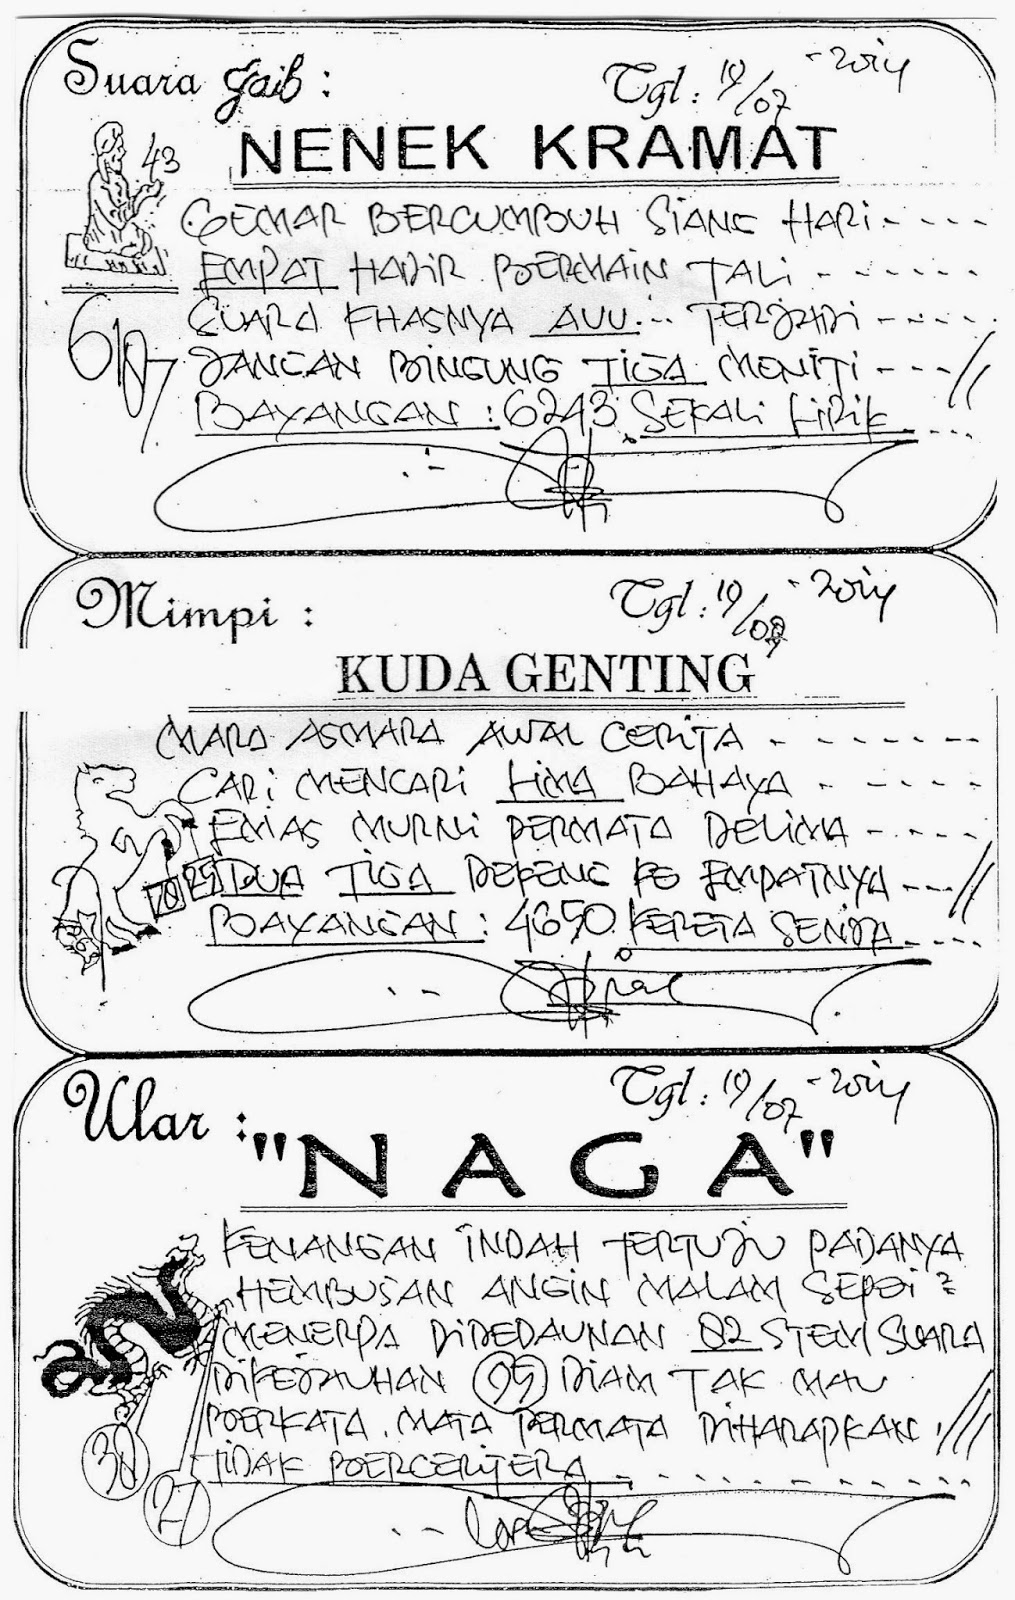 Suara Gaib :
Tgl : 19/07 - 2014
NENEK KRAMAT
43
GEMAR BERCUMBUH SIANG HARI - - - -
EMPAT HADIR BERMAIN TALI - - - - -
SUARA KHASNYA AUU... TERJADI - - - -
JANGAN BINGUNG TIGA MENITI - - - //
BAYANGAN : 6243. SEKALI LIRIK - - -
Mimpi :
Tgl : 19/07 - 2014
KUDA GENTING
MARA ASMARA AWAL CERITA - - - - - -
CARI MENCARI LIMA BAHAYA - - - -
EMAS MURNI PERMATA DELIMA - - - -
70 25 DUA TIGA DEKENG KE EMPATNYA - - - //
BAYANGAN : 4650. KERETA SENJA - - - -
Ular :
Tgl : 19/07 - 2014
"NAGA"
KENANGAN INDAH TERTUJU PADANYA
HEMBUSAN ANGIN MALAM SEPOI 2
MENERPA DIDEDAUNAN 02 STEM SUARA
DIKEJAUHAN 09 DIAM TAK MAU
BERKATA. MATA PERMATA DIHARAPKAN ///
TIDAK BERCERITERA - - - - - - -
30
27